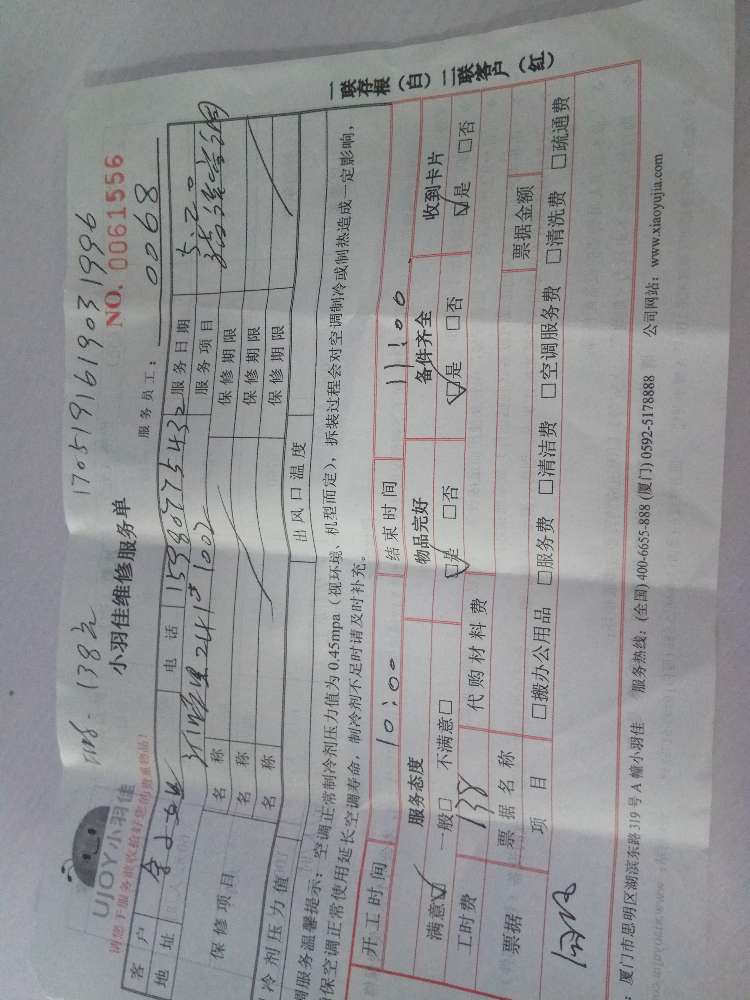 138元 1705191619031996
UJOY小羽佳
小羽佳维修服务单
NO. 0061556
请您于服务前收拾好您的贵重物品!
服务员工: 0068
客户 余女士 电话 15980775432 服务日期 5.20
地址 241 1002 服务项目
保修项目 名称 保修期限
名称 保修期限
名称 保修期限
冷剂压力值 出风口温度
调服务温馨提示:空调正常制冷剂压力值为 0.45mpa(视环境、机型而定),拆装过程会对空调制冷或制热造成一定影响,
保空调正常使用延长空调寿命,制冷剂不足时请及时补充。
开工时间 10:00 结束时间 11:00
服务态度 物品完好 备件齐全 收到卡片
满意☑ 一般□ 不满意□ ☑是 □否 ☑是 □否 ☑是 □否
工时费 138 代购材料费
票据 票据名称 票据金额
项目 □搬办公用品 □服务费 □清洁费 □空调服务费 □清洗费 □疏通费
厦门市思明区湖滨东路 319 号 A 幢小羽佳 服务热线:(全国) 400-6655-888 (厦门) 0592-5178888 公司网站:www.xiaoyujia.com
一联存根(白)二联客户(红)